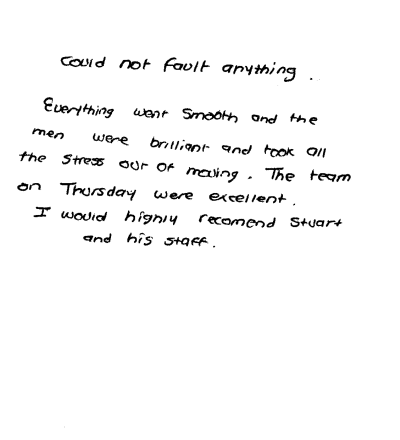 Could not fault anything.
Everything went smooth and the
men were brilliant and took all
the stress out of moving. The team
on Thursday were excellent.
I would highly recomend Stuart
and his staff.